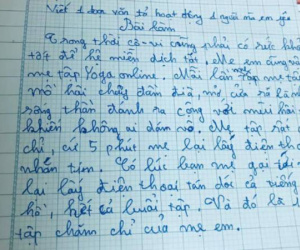 Viết 1 đoạn văn tả hoạt động 1 người mà em yêu
Bài làm
Trong thời cô-vi cũng phải có sức khỏe
tốt để hệ miễn dịch tốt. Mẹ em cũng vậy
mẹ tập Yoga online. Mỗi lần tập mẹ
mồ hôi chảy đầm đìa, mở cửa
thần đánh ra cộng với mùi hôi
khiến không ai dám vô. Mẹ tập rất
chỉ, cứ 5 phút mẹ lại lấy điện tho
nhắn tin. Có lúc bạn mẹ gọi tới
lại lấy điện thoại tán dóc cả tiếng
hồ, hết cả buổi tập. Và đó là
tập chăm chỉ của mẹ em.